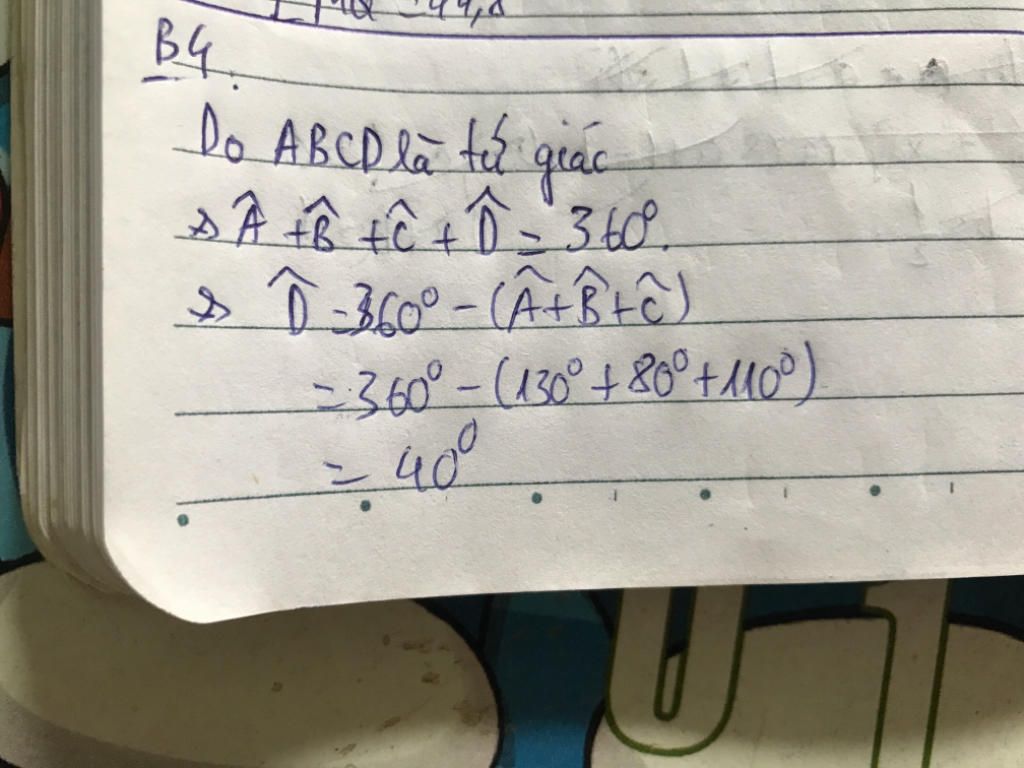 B4
Do ABCD là tứ giác
=> Â + B̂ + Ĉ + D̂ = 360⁰.
=> D̂ = 360⁰ - (Â + B̂ + Ĉ)
= 360⁰ - (130⁰ + 80⁰ + 110⁰)
= 40⁰